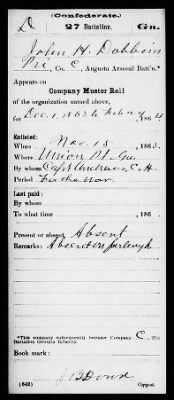 (Confederate.)
D 27 Battalion. Ga.
John H. Dobbins
Pvt, Co. C, Augusta Arsenal Batt'n.*
Appears on
Company Muster Roll
of the organization named above,
for Dec. 1, 1863 to Feby 1864.
Enlisted:
When Nov. 18, 1863.
Where Union Pt. Ga.
By whom Capt.
Period For the War
Last paid:
By whom
To what time , 186 .
Present or absent Absent
Remarks: Absent on furlough
*This company subsequently became Company C, 27th Battalion Georgia Infantry
Book mark:
(642) Copyist.